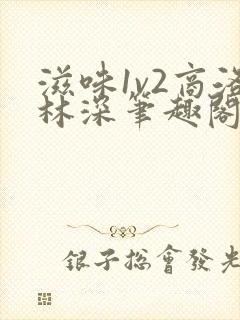 滋味1v2高洛
林深笔趣阁
银子总会发光